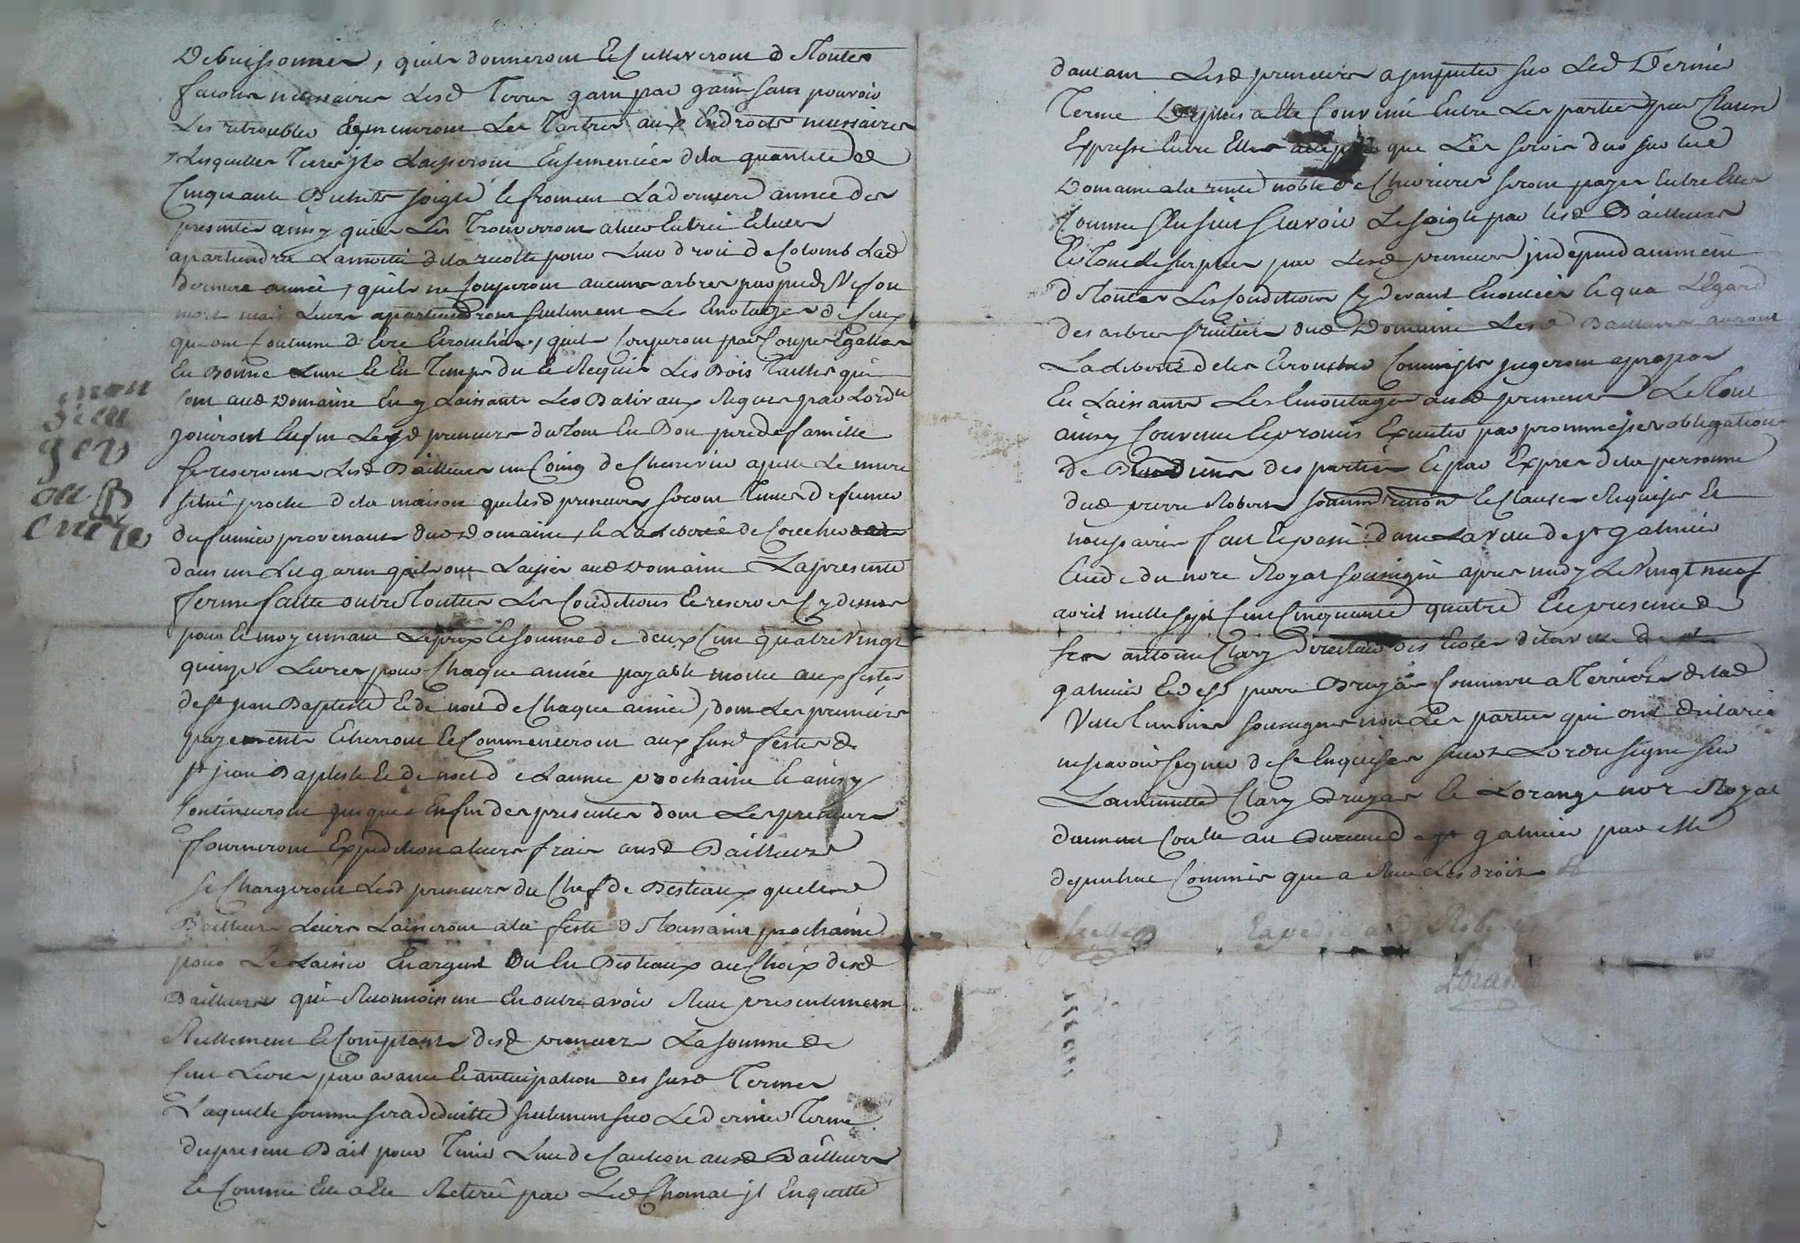 Debuissonner, quils donneront & Cultiveront de Toutes
facons necessaires Lesd Terres gain par gain sans pouvoir
Les retroubler & meneront Les Tertres aux Endroits necessaires
Lesquelles Terres Laisseront Ensemencées dela quantité de
Cinquante Bichets soigle & froment La derniere année des
presentes ainsy quils Les Trouveront a leur Entrée & leur
apartiendra La moitié dela recolte pour Leur droit de Colomb Lad
derniere année, quils ne Couperont aucuns arbres par pied vif ou
mort mais Leurs apartiendront seulement Les Emotages de Ceux
qui ont Coutume d'Etre Etronchés, quils Couperont par Coupes Egalles
En Bonne Lune & En Temps du & Requis Les Bois Taillis qui
sont aud Domaine En y Laissants Les Balivaux Requis par Lordce
joüiront Enfin Lesd preneurs du Tout En Bon pere de famille
se reservent Lesd Bailleurs un Coing de Cheneviere
situé proche dela maison quelesd preneurs seront Tenus de fumer
du fumier provenant dud Domaine, & La Liberté de Coucher
dans un Lit garni quils ont Laissé aud Domaine La presente
ferme faitte outre Touttes Les Conditions & reserves Cy dessus
pour & moyennant Le prix & somme de deux Cent quatre Vingt
quinze Livres pour Chaque année payable moitié aux festes
de st jean Baptiste & de noel de Chaque année, dont Les premiers
payements Echerront & Commenceront aux susd festes de
st jean Baptiste & de noel de Lannée prochaine & ainsy
Continueront jusques Enfin des presentes dont Les preneurs
fourniront Expedition a leurs frais ausd Bailleurs
se Chargeront Lesd preneurs du Chef de Bestiaux que lesd
Bailleurs Leurs Laisseront a la feste de Toussaint prochaine
pour Le Laisser En argent ou En Bestiaux au Choix desd
Bailleurs qui Reconnoissent En outre avoir Reçu presentement
Reellement & Comptant desd preneurs La somme de
Cent Livres par avance & anticipation des susd Termes
Laquelle somme sera deduitte seulement sur Le dernier Terme
du present Bail pour Tenir Lieu de Caution ausd Bailleurs
& Comme Elle a Eté Retirée par Led Chomat jl En quitte
mon
dieu
gev
ou
d'autant Lesd preneurs a jmputer sur Led Dernier
Terme De plus a Eté Convenu Entre Les parties par Clause
Expresse Entre Elles que Les servis dus sur led
Domaine a la rente noble de Chevrieres seront payés Entre Elles
Comme sEnsuit sCavoir Le soigle par lesd Bailleurs
Et Tout Le surplus par Lesd preneurs jndependamment
de Toutes Les Conditions Cy devant Enoncées & qua Légard
des arbres fruitiers dud Domaine Lesd Bailleurs auront
La Liberté de les Etroncher Comme jls jugeront a propos
En Laissants Les Emontages ausd preneurs Le Tout
ainsy Convenu & promis Executer par promesses obligations
de Biens des parties & par Expres dela personne
dud pierre Robert soumission renon & Clauses Requises Et
necessaires fait & passé dans La ville de st galmier
Etude du nore Royal soussigné apres midy Le Vingt neuf
avril mille sept Cent Cinquante quatre En presence de
sieur antoine Clary directeur des Ecoles de la ville de st
galmier & de sr pierre Bruyas Commis a Terriers de lad
Ville Temoins soussignés non Les parties qui ont declaré
ne sçavoir signer de Ce Enquises suivt Lordce signé sur
La minutte Clary Bruyas & Lorange nore Royal
dument Controllé au Bureau de st galmier par
Commis qui a Reçu Les droits